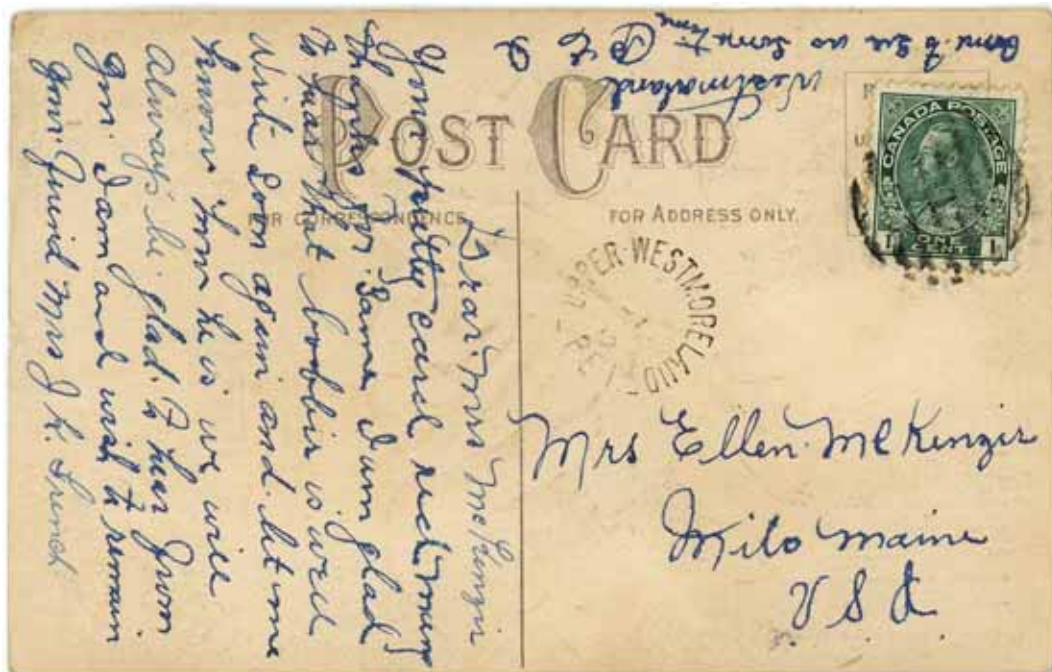 POST CARD
FOR CORRESPONDENCE
FOR ADDRESS ONLY.
CANADA POSTAGE
1 ONE CENT 1
UPPER-WESTMORELAND
P E I
Westmorland
P E
Come to see us some time
Dear Mrs McKenzie
Your pretty card recd many
thanks for same I am glad
to hear that bobbie is well
Write soon again and let me
know how he is we will
always be glad to hear from
you. I am and wish to remain
your friend Mrs J K French
Mrs Ellen McKenzie
Milo Maine
U S A